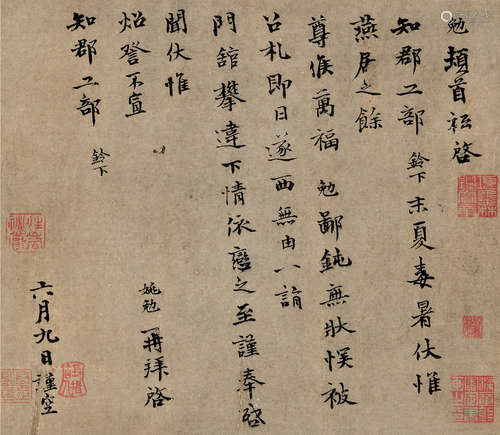 勉頓首啓
知郡工部 鈴下末夏毒暑伏惟
燕居之餘
尊候萬福勉鄙鈍無狀悞被
召札即日遂西無由八詣
門舘攀違下情依戀之至謹奉啓
聞伏惟
炤詧不宣
姚勉 再拜啓
知郡工部 鈴下
六月九日謹空